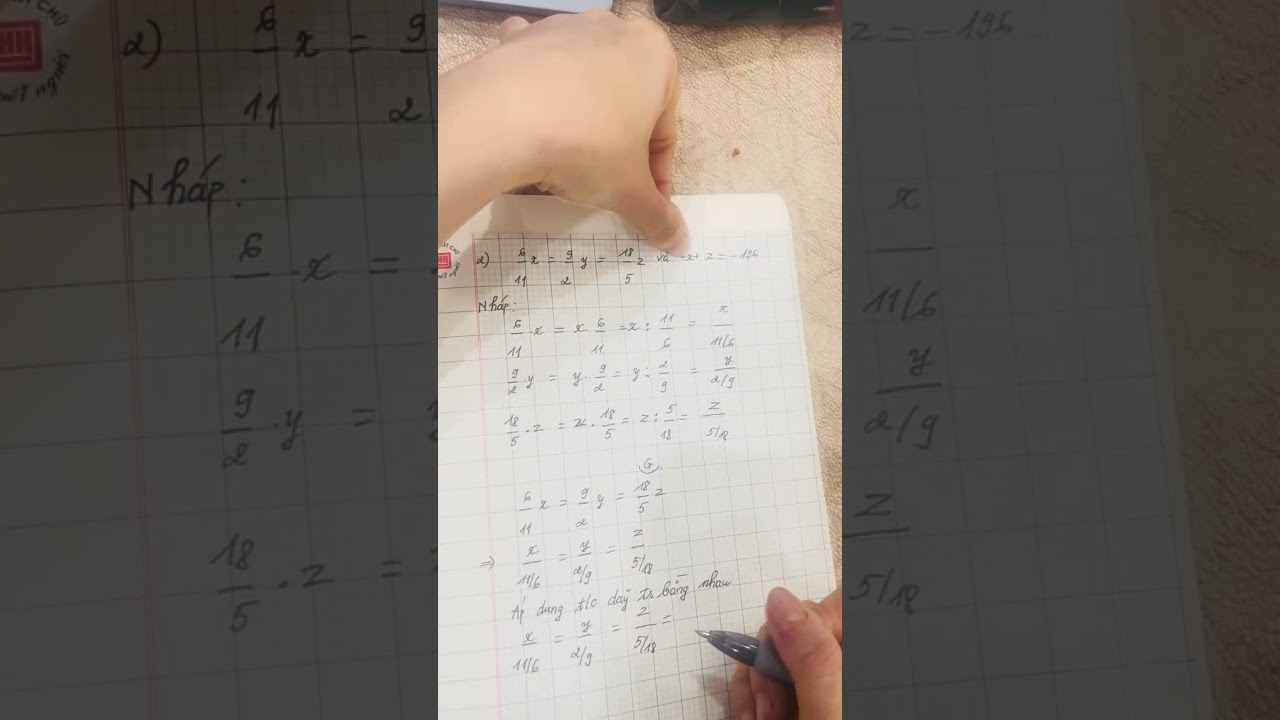 a) 6/11 x = 9/2 y = 18/5 z và -x+z=-196
Nháp:
6/11 ·x = x· 6/11 =x: 11/6 = x/11/6
9/2 ·y = y· 9/2 = y: 2/9 = y/2/9
18/5 ·z = z· 18/5 = z: 5/18 = z/5/18
G
6/11 x = 9/2 y = 18/5 z
=> x/11/6 = y/2/9 = z/5/18
Áp dụng t/c dãy ts bằng nhau
x/11/6 = y/2/9 = z/5/18 =